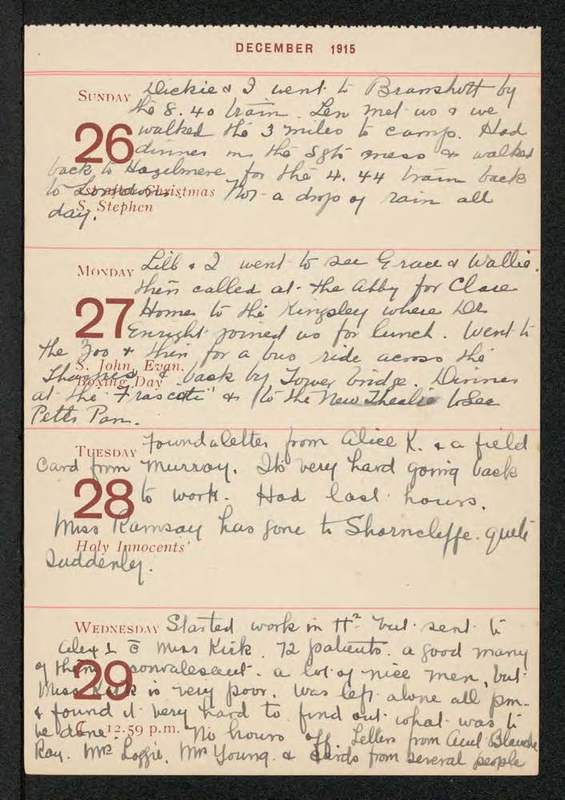 DECEMBER 1915
SUNDAY Dickie & I went to Bramshott by
the 8.40 train. Len met us & we
26 walked the 3 miles to camp. Had
dinner in the Sgts mess & walked
back to Hazelmere for the 4.44 train back
1st aft. Christmas
to London. Not a drop of rain all
S. Stephen
day.
MONDAY Lill & I went to see Grace & Wallie.
then called at the Abby for Clare
27 Home to the Kingsley where Dr
Enright joined us for lunch. Went to
the Zoo & then for a bus ride across the
S. John, Evan.
Thames & back by Tower bridge. Dinner
Boxing Day
at the "Frascati" & to the New Theatre to see
Peter Pan.
TUESDAY Found a letter from Alice K. & a field
card from Murray. Its very hard going back
28 to work. Had last hours.
Miss Ramsay has gone to Shorncliffe quite
Holy Innocents'
suddenly.
WEDNESDAY Started work in H² but sent to
Alex 1 c̄ Miss Kirk. 72 patients. a good many
of them convalescent. a lot of nice men, but
29
Miss Kirk is very poor. Was left alone all pm.
& found it very hard to find out what was to
12.59 p.m.
be done. No hours off. Letters from Aunt Blanche
Kay. Mrs Loggie. Mrs Young. & cards from several people